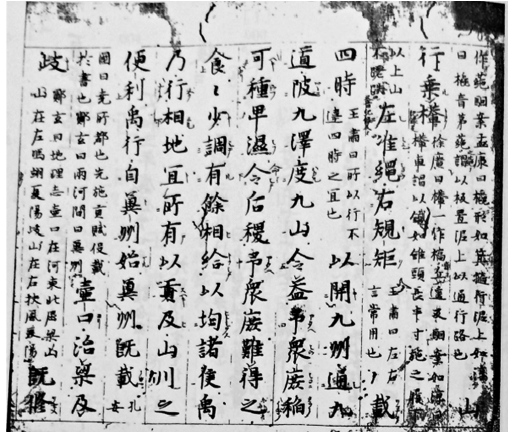 作蕝駰案孟康曰橇形如箕擿行泥上如淳
曰橇音茅蕝謂以板置泥上以通行路也
山
行乗檋
徐廣曰檋一作橋音丘遥反駰案如淳曰
檋車謂以鐵如錐頭長半寸施之履下
以上山
不蹉跌
左准繩右規矩
王肅曰左右
言常用也
載
四時
王肅曰所以行不
違四時之宜也
以開九州通九
道陂九澤度九山令益予衆庶稻
可種卑濕令后稷予衆庶難得之
食〻少調有餘相給以均諸侯禹
乃行相地宜所有以貢及山川之
便利禹行自冀州始冀州既載
孔
安
國曰堯所都也先施貢賦役載
於書也鄭玄曰兩河間曰冀州
壷口治梁及
岐
鄭玄曰地理志壷口在河東北屈梁
山在左馮翊夏陽岐山在右扶風美陽
既脩